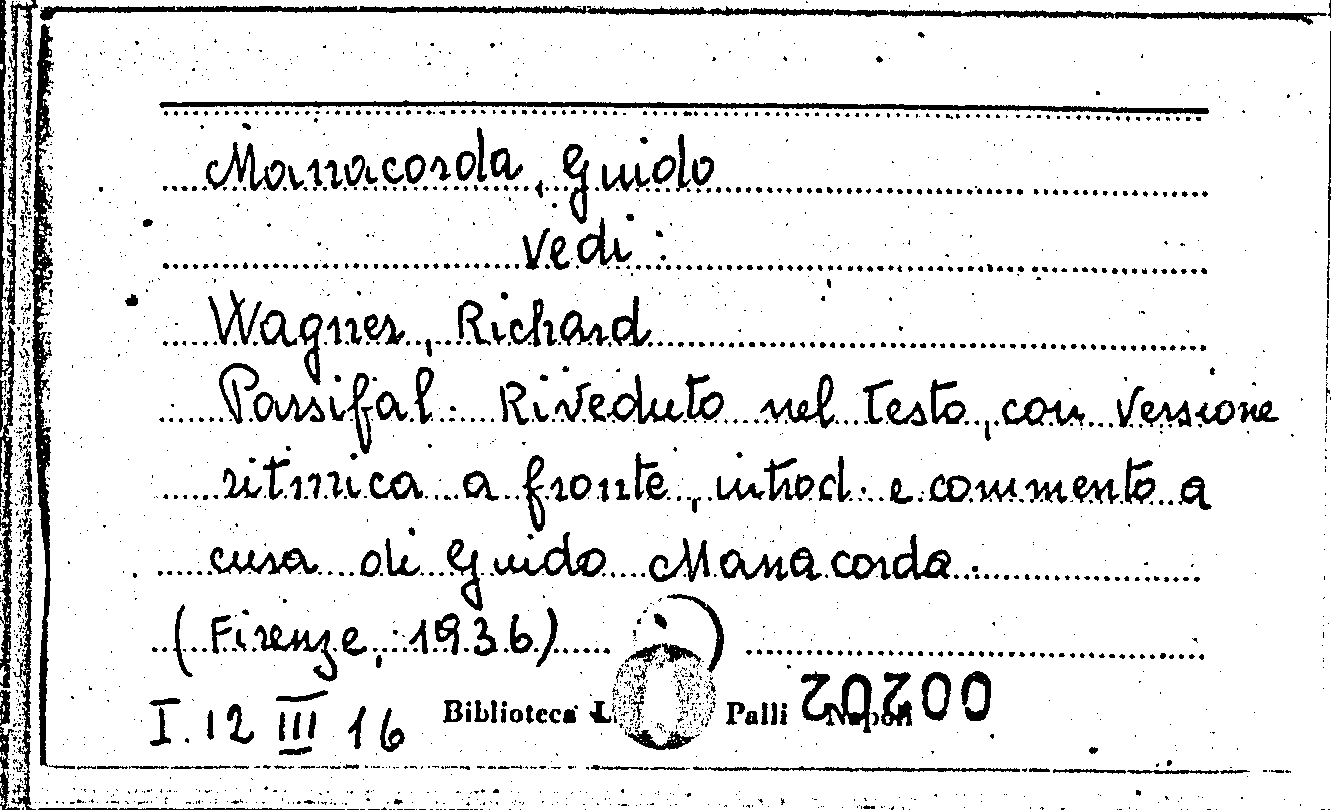 Manacorda, Guido
vedi:
Wagner, Richard
Parsifal. Riveduto nel testo, con versione
ritmica a fronte, introd. e commento a
cura di Guido Manacorda.
(Firenze, 1936)
I. 12 III 16 Biblioteca L. Palli Napoli 20200